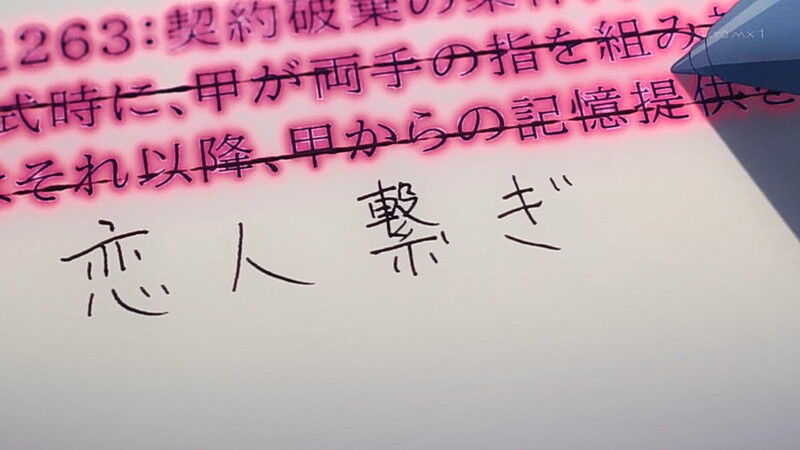 263:契約破棄の条件
式時に、甲が両手の指を組み
それ以降、甲からの記憶提供を
恋人繋ぎ